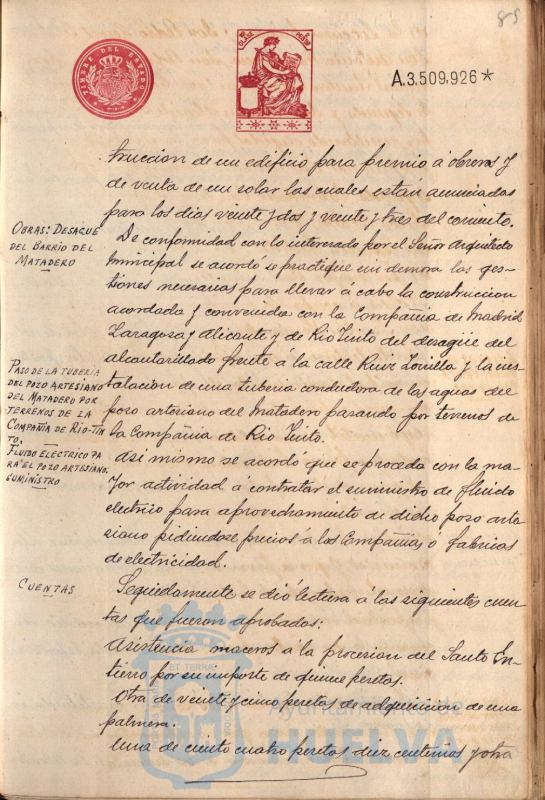 85
TIMBRE DEL ESTADO
A.3.509.926*
truccion de un edificio para premio á obreros y
de venta de un solar las cuales están anunciadas
para los dias veinte y dos y veinte y tres del corriente.
OBRAS: DESAGÜE
DEL BARRIO DEL
MATADERO
De conformidad con lo interesado por el Señor Arquitecto
municipal se acordó se practique sin demora las ges-
tiones necesarias para llevar á cabo la construccion
acordada y convenida con la Compañia de Madrid
Zaragoza y Alicante y de Rio Tinto del desagüe del
alcantarillado frente á la calle Ruiz Zorrilla y la ins-
PASO DE LA TUBERIA
DEL POZO ARTESIANO
DEL MATADERO POR
TERRENOS DE LA
COMPAÑIA DE RIO-TIN
TO.
talacion de una tuberia conductora de las aguas del
pozo artesiano del Matadero pasando por terrenos de
la Compañia de Rio Tinto.
FLUIDO ELECTRICO PA
RA EL POZO ARTESIANO.
SUMINISTRO
Asi mismo se acordó que se proceda con la ma-
yor actividad á contratar el suministro de fluido
electrico para aprovechamiento de dicho pozo arte-
siano pidiendose precios á las Compañias ó fabricas
de electricidad.
CUENTAS
Seguidamente se dió lectura á las siguientes cuen-
tas que fueron aprobadas:
Asistencia maceros á la procesion del Santo En-
tierro por su importe de quince pesetas.
Otra de veinte y cinco pesetas de adquisicion de una
palmera.
Una de ciento cuatro pesetas diez centimos y otra
Ayuntamiento de
HUELVA